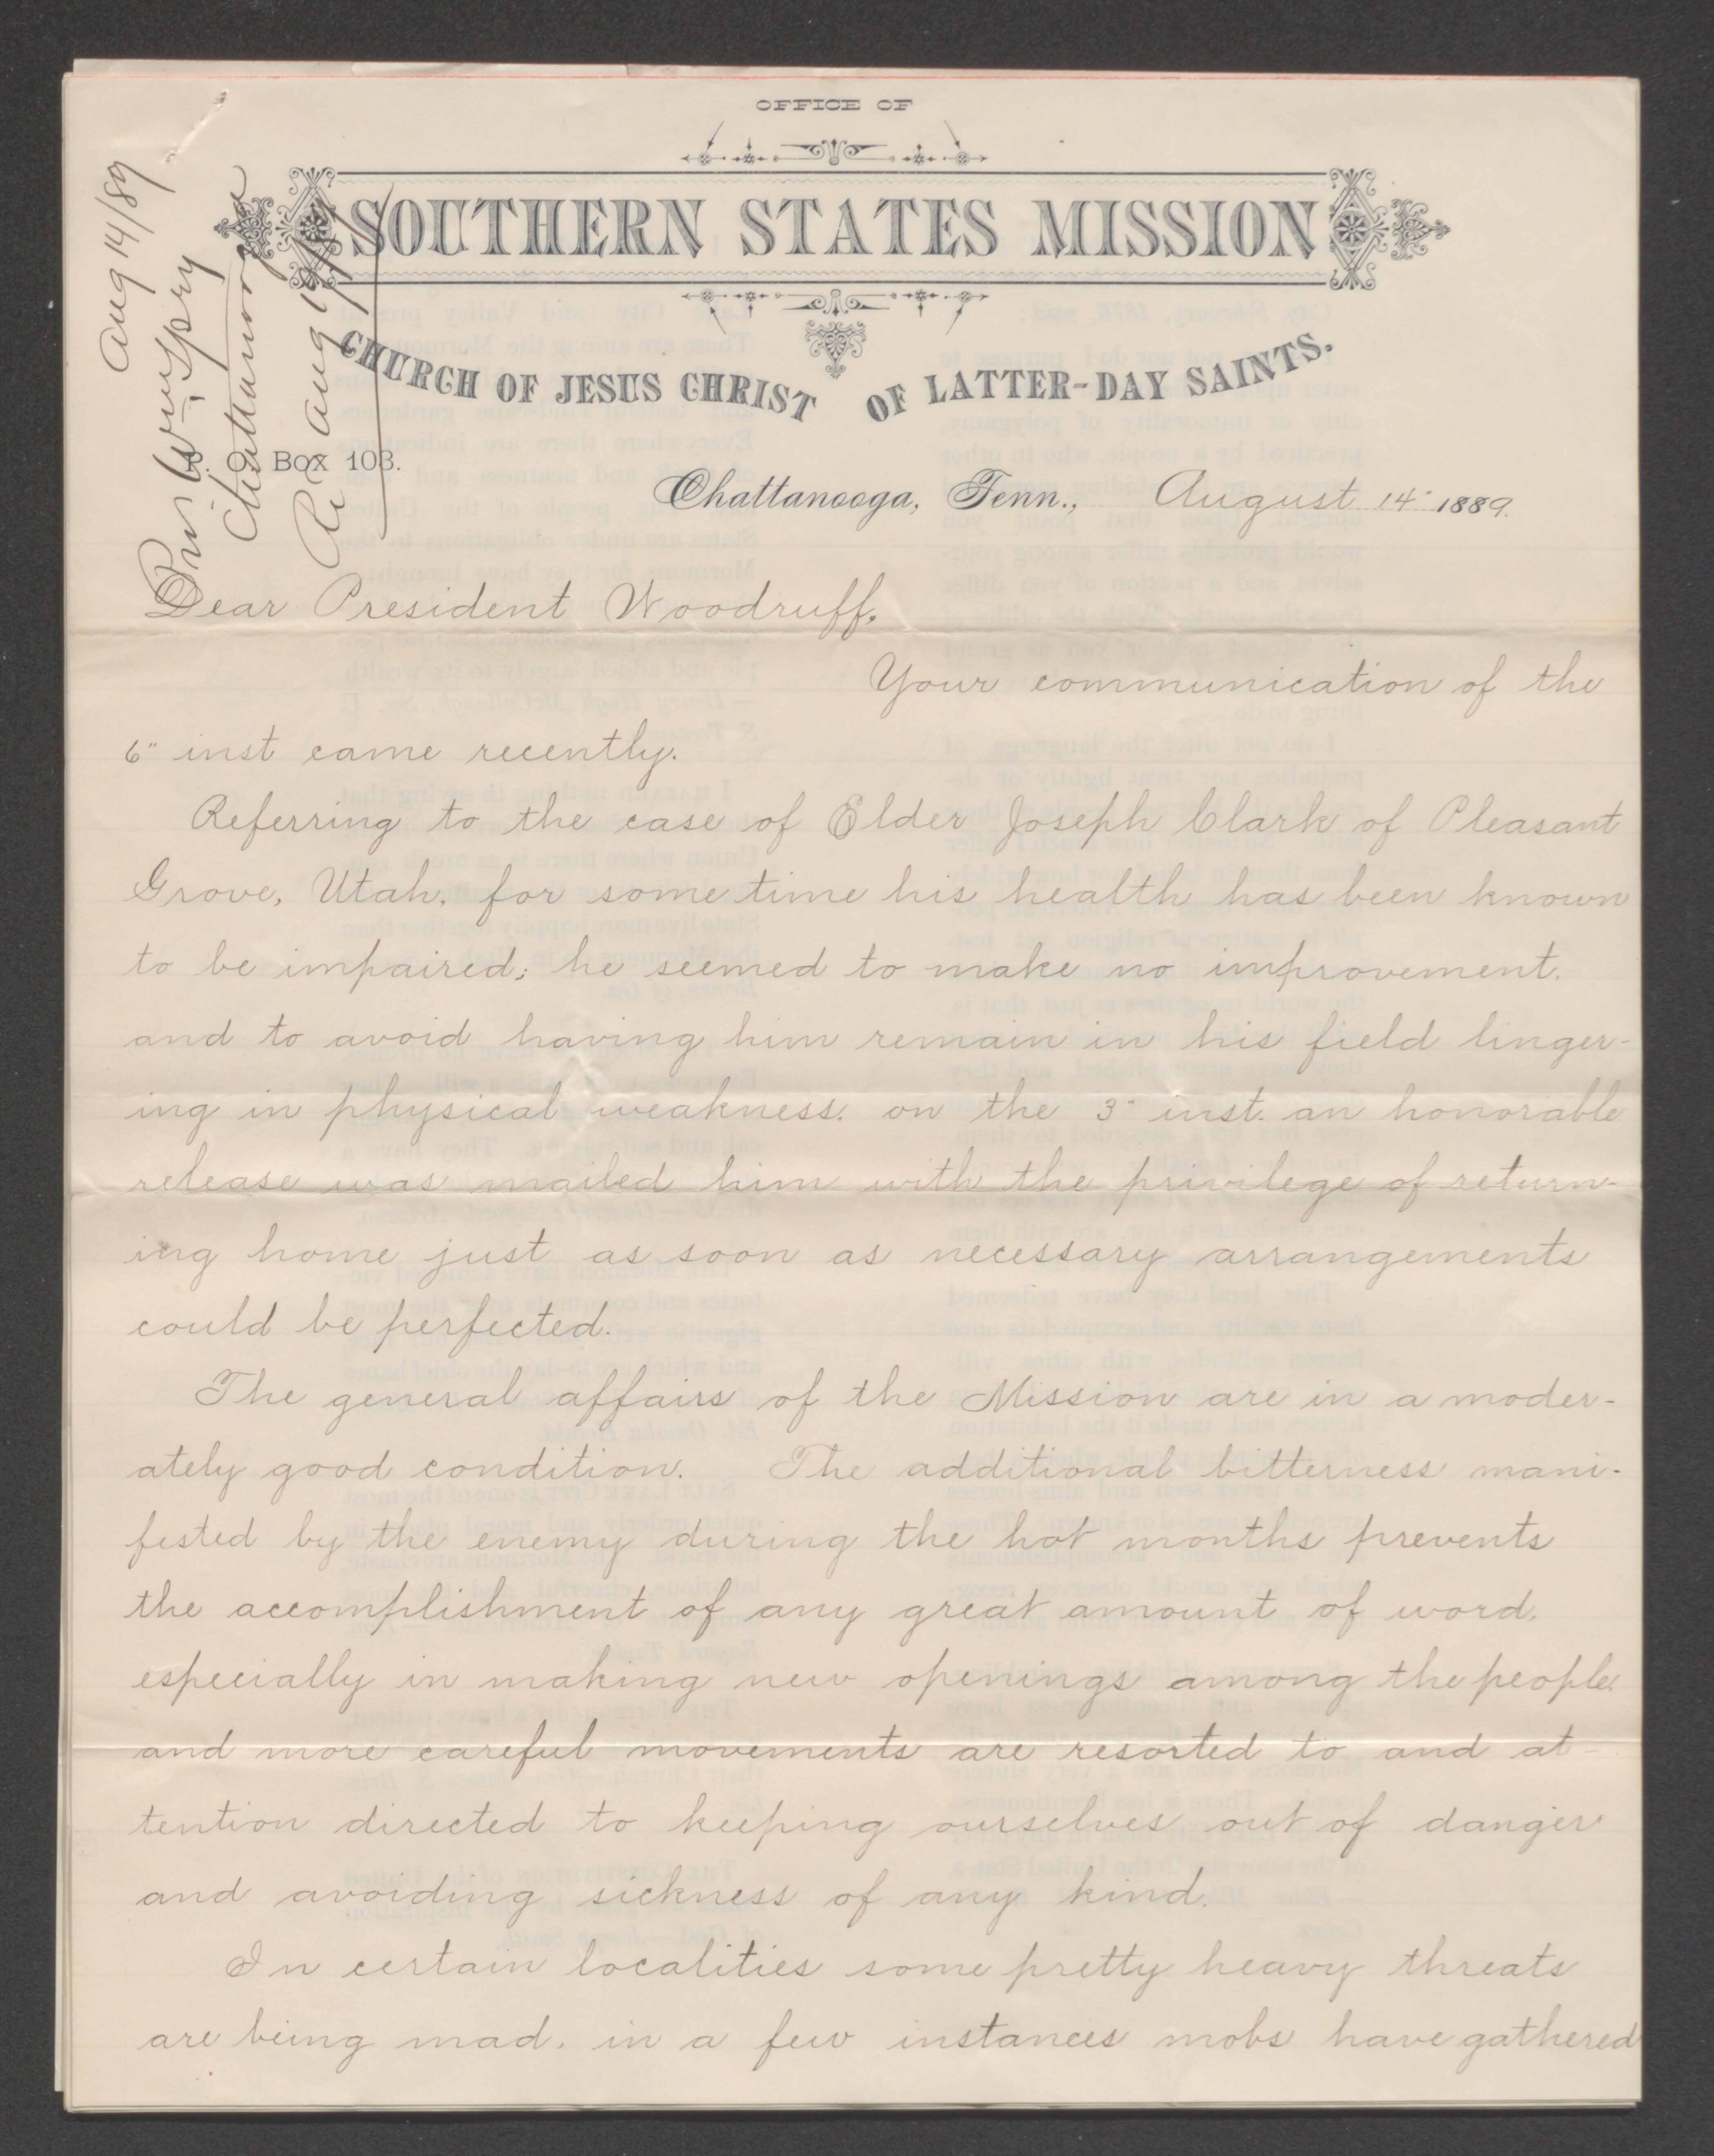 OFFICE OF
SOUTHERN STATES MISSION
CHURCH OF JESUS CHRIST OF LATTER-DAY SAINTS.
P. O. Box 103.
Aug 14/89
Wm Spry
Chattanooga
Aug 19/89
Chattanooga, Tenn., August 14" 1889.
Dear President Woodruff.
Your communication of the
6" inst came recently.
Referring to the case of Elder Joseph Clark of Pleasant
Grove, Utah, for some time his health has been known
to be impaired; he seemed to make no improvement,
and to avoid having him remain in his field linger-
ing in physical weakness, on the 3" inst. an honorable
release was mailed him with the privilege of return-
ing home just as soon as necessary arrangements
could be perfected.
The general affairs of the Mission are in a moder-
ately good condition. The additional bitterness mani-
fested by the enemy during the hot months prevents
the accomplishment of any great amount of word,
especially in making new openings among the people,
and more careful movements are resorted to and at-
tention directed to keeping ourselves out of danger
and avoiding sickness of any kind.
In certain localities some pretty heavy threats
are being mad, in a few instances mobs have gathered